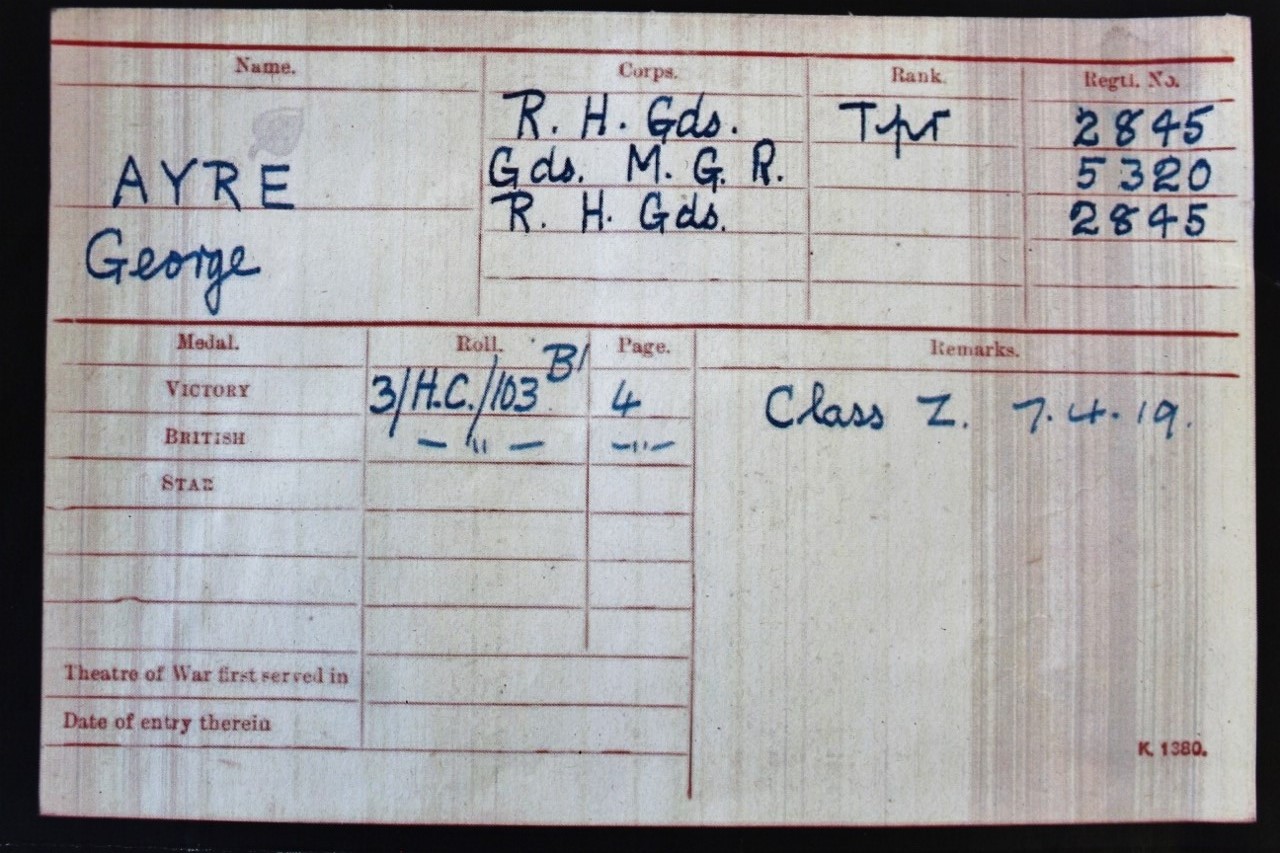 Name. Corps. Rank. Regtl. No.
R. H. Gds. Tpr 2845
AYRE Gds. M. G. R. 5320
R. H. Gds. 2845
George
Medal. Roll. Page. Remarks.
VICTORY 3/H.C./103 B1 4 Class Z. 7.4.19.
BRITISH — " — — " —
STAR
Theatre of War first served in
Date of entry therein
K. 1380.